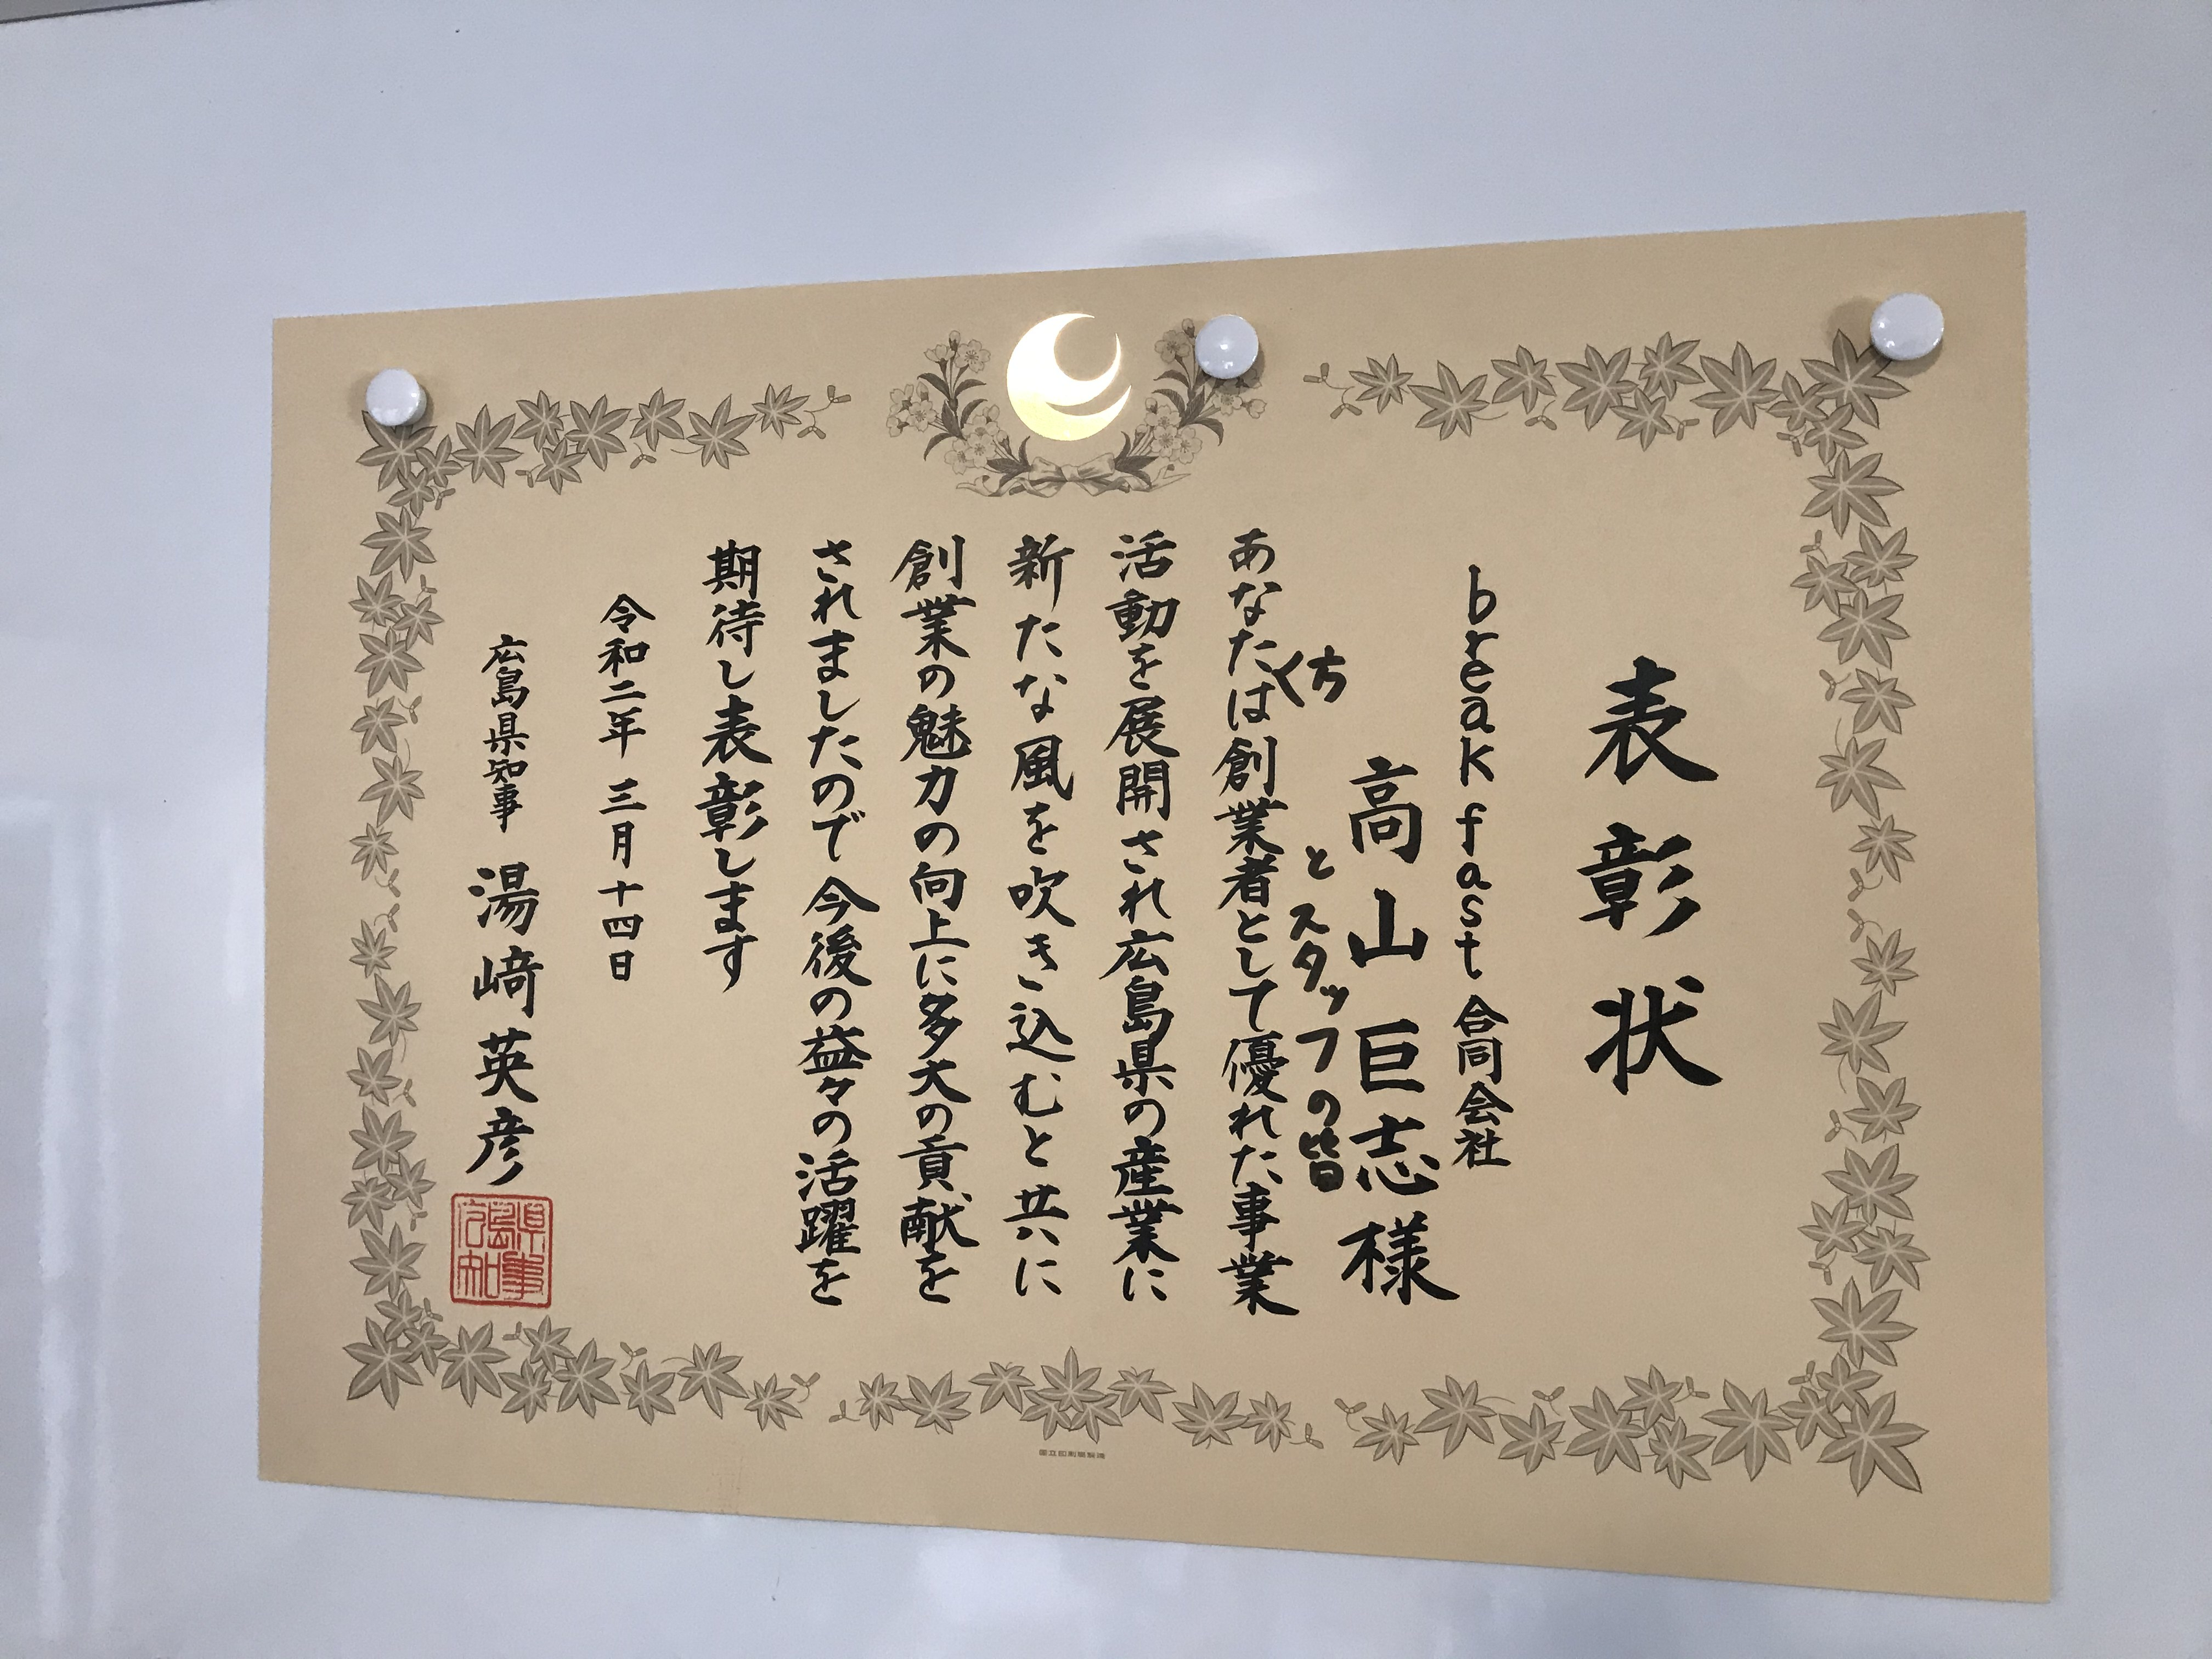 表彰状
breakfast合同会社
高山巨志様
とスタッフの皆
あなたは創業者として優れた事業
方
活動を展開され広島県の産業に
新たな風を吹き込むと共に
創業の魅力の向上に多大の貢献を
されましたので今後の益々の活躍を
期待し表彰します
令和二年三月十四日
広島県知事 湯﨑英彦
広島県知事
国立印刷局製造